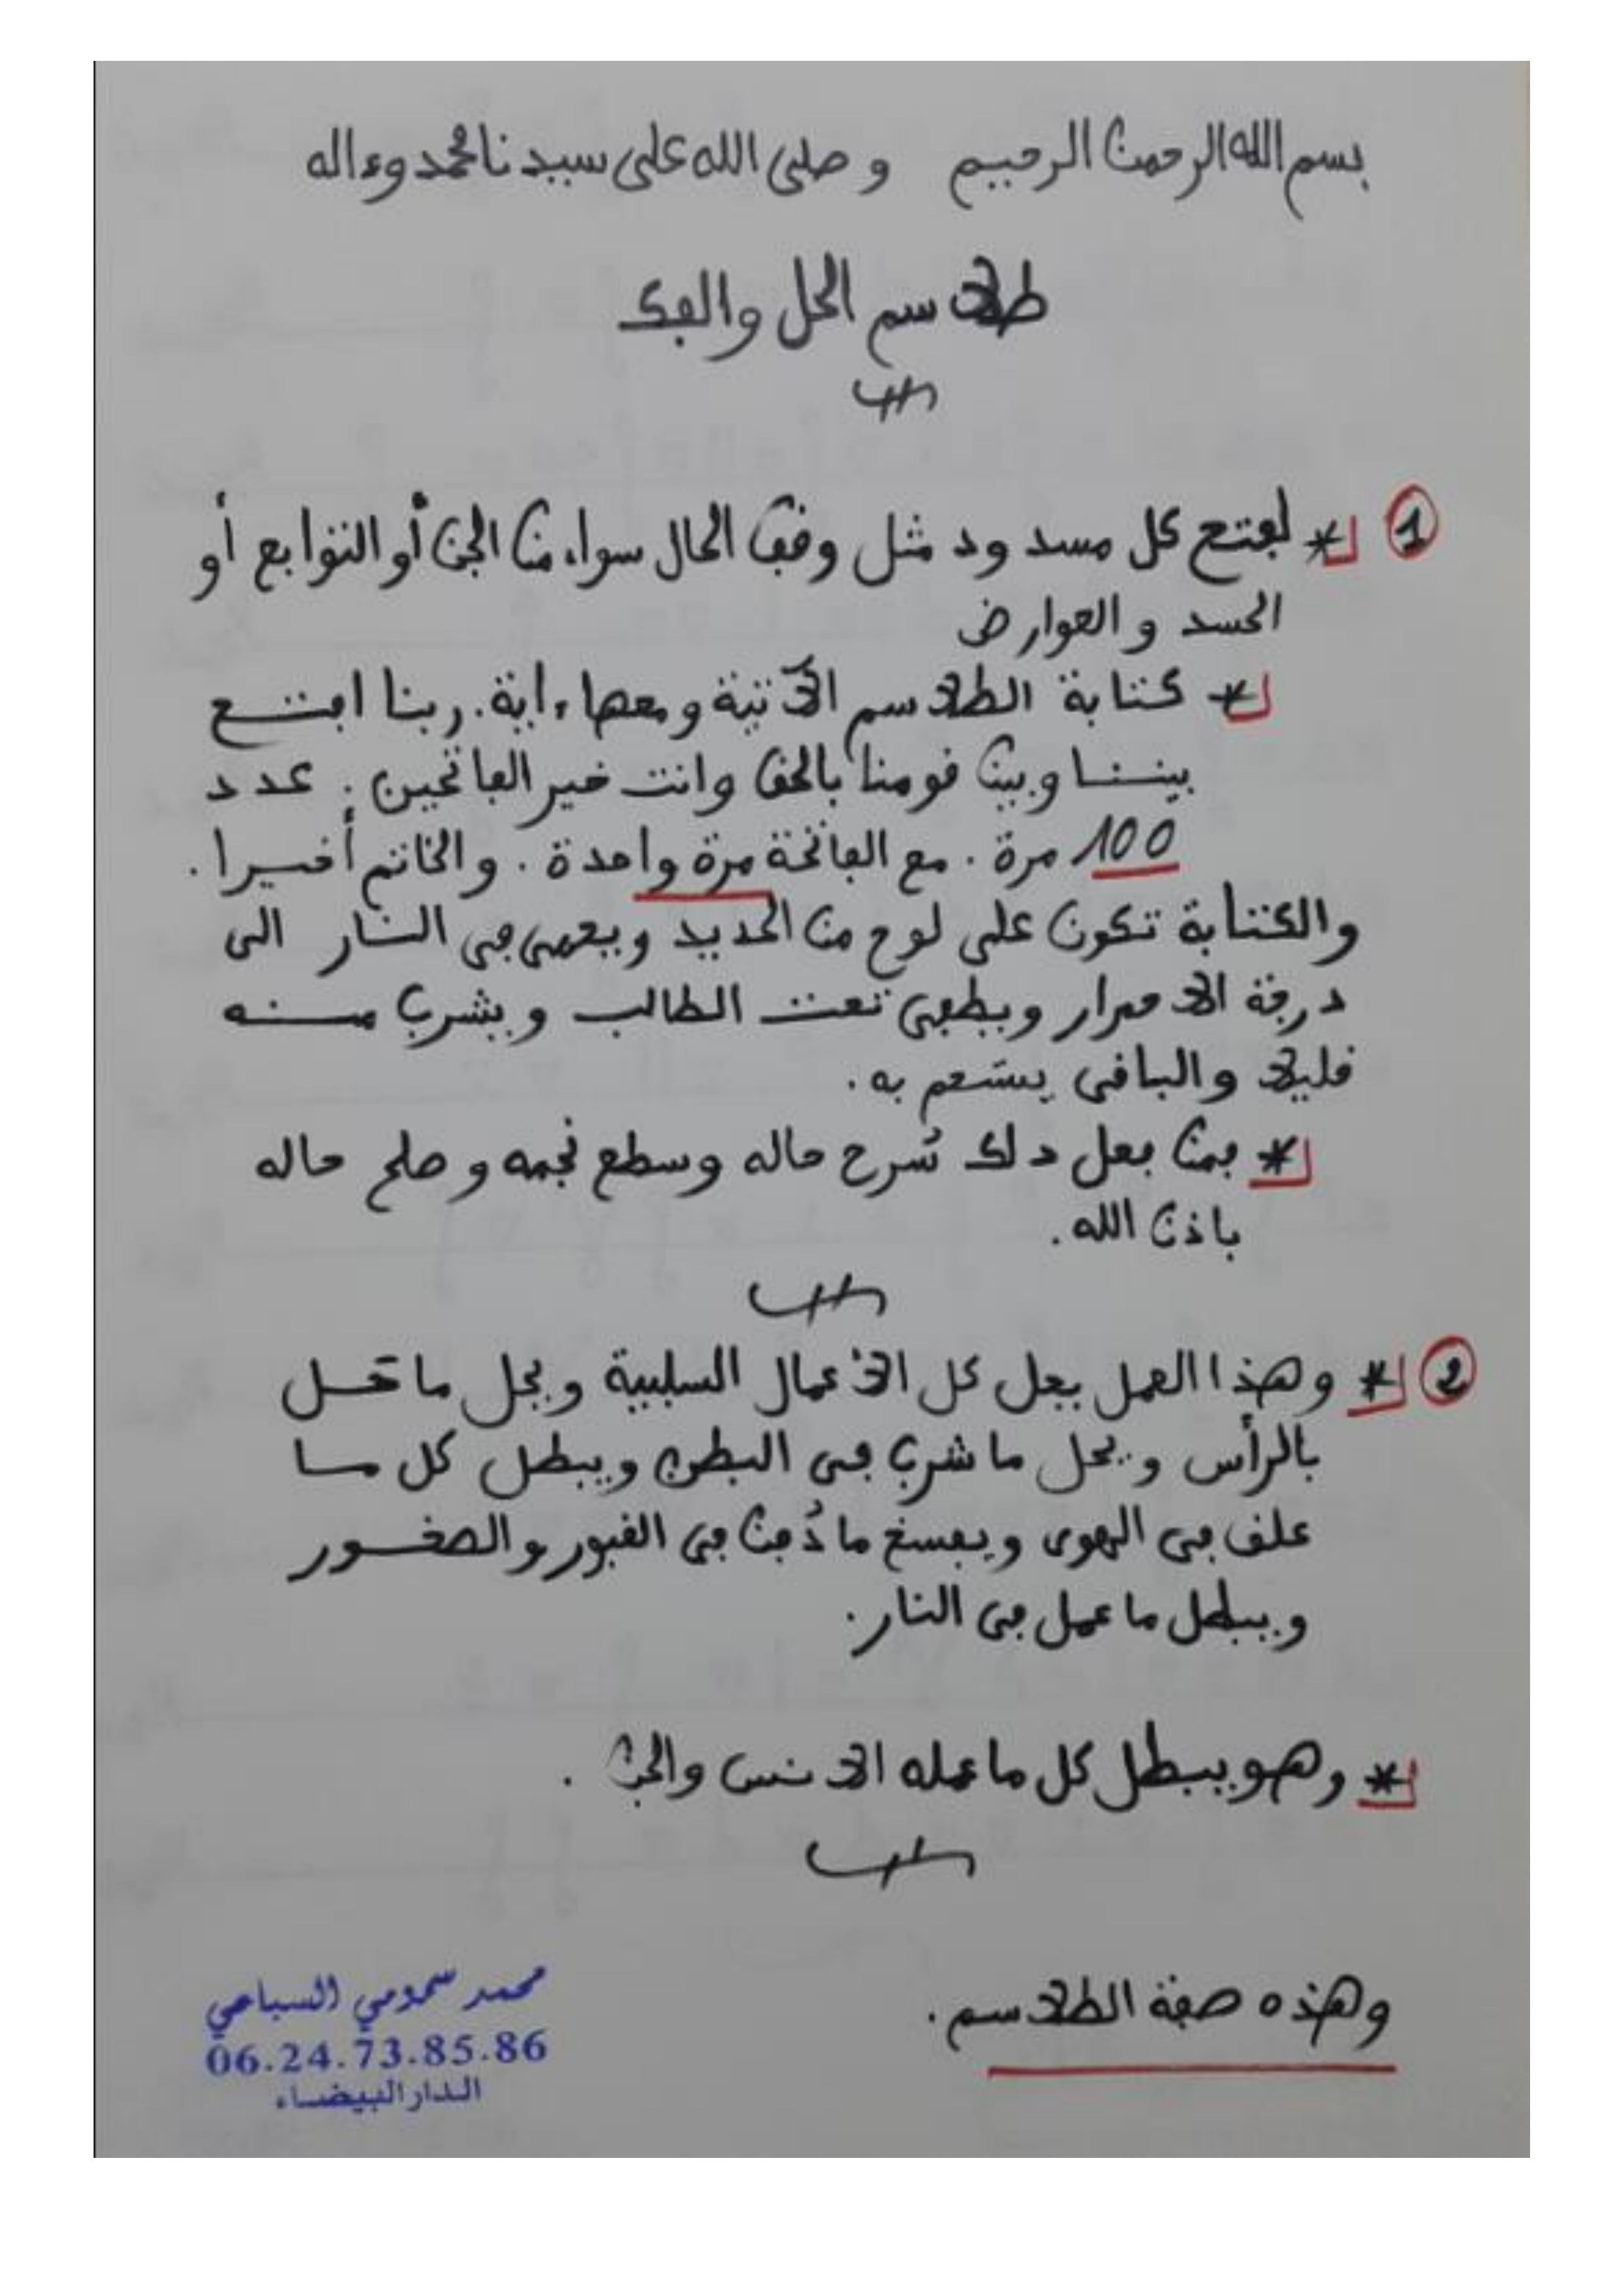 بسم الله الرحمن الرحيم وصلى الله على سيدنا محمد وءاله
طلاسم الحل والفك
1 * لفتح كل مسدود مثل وقف الحال سواء من الجن أو التوابع أو
الحسد والعوارض
* كتابة الطلاسم الآتية ومعها ءاية. ربنا افتح
بيننا وبين قومنا بالحق وانت خير الفاتحين. عدد
100 مرة. مع الفاتحة مرة واحدة. والخاتم أخيرا.
والكتابة تكون على لوح من الحديد ويعمى في النار الى
درجة الاحمرار ويطفى تحت الطالب ويشرب منه
قليلا والباقي يستحم به.
* فمن فعل دلك سُرح حاله وسطع نجمه وصلح حاله
باذن الله.
2 * وهذا العمل يحل كل الأعمال السلبية ويحل ما تحل
بالرأس ويحل ما شرب في البطن ويبطل كل ما
علق في الهوى ويفسخ ما دُفن في القبور والصخور
ويبطل ما عمل في النار.
* وهو يبطل كل ما عمله الانس والجن.
وهذه صفة الطلاسم.
محمد سمومي السباعي
06.24.73.85.86
الدار البيضاء